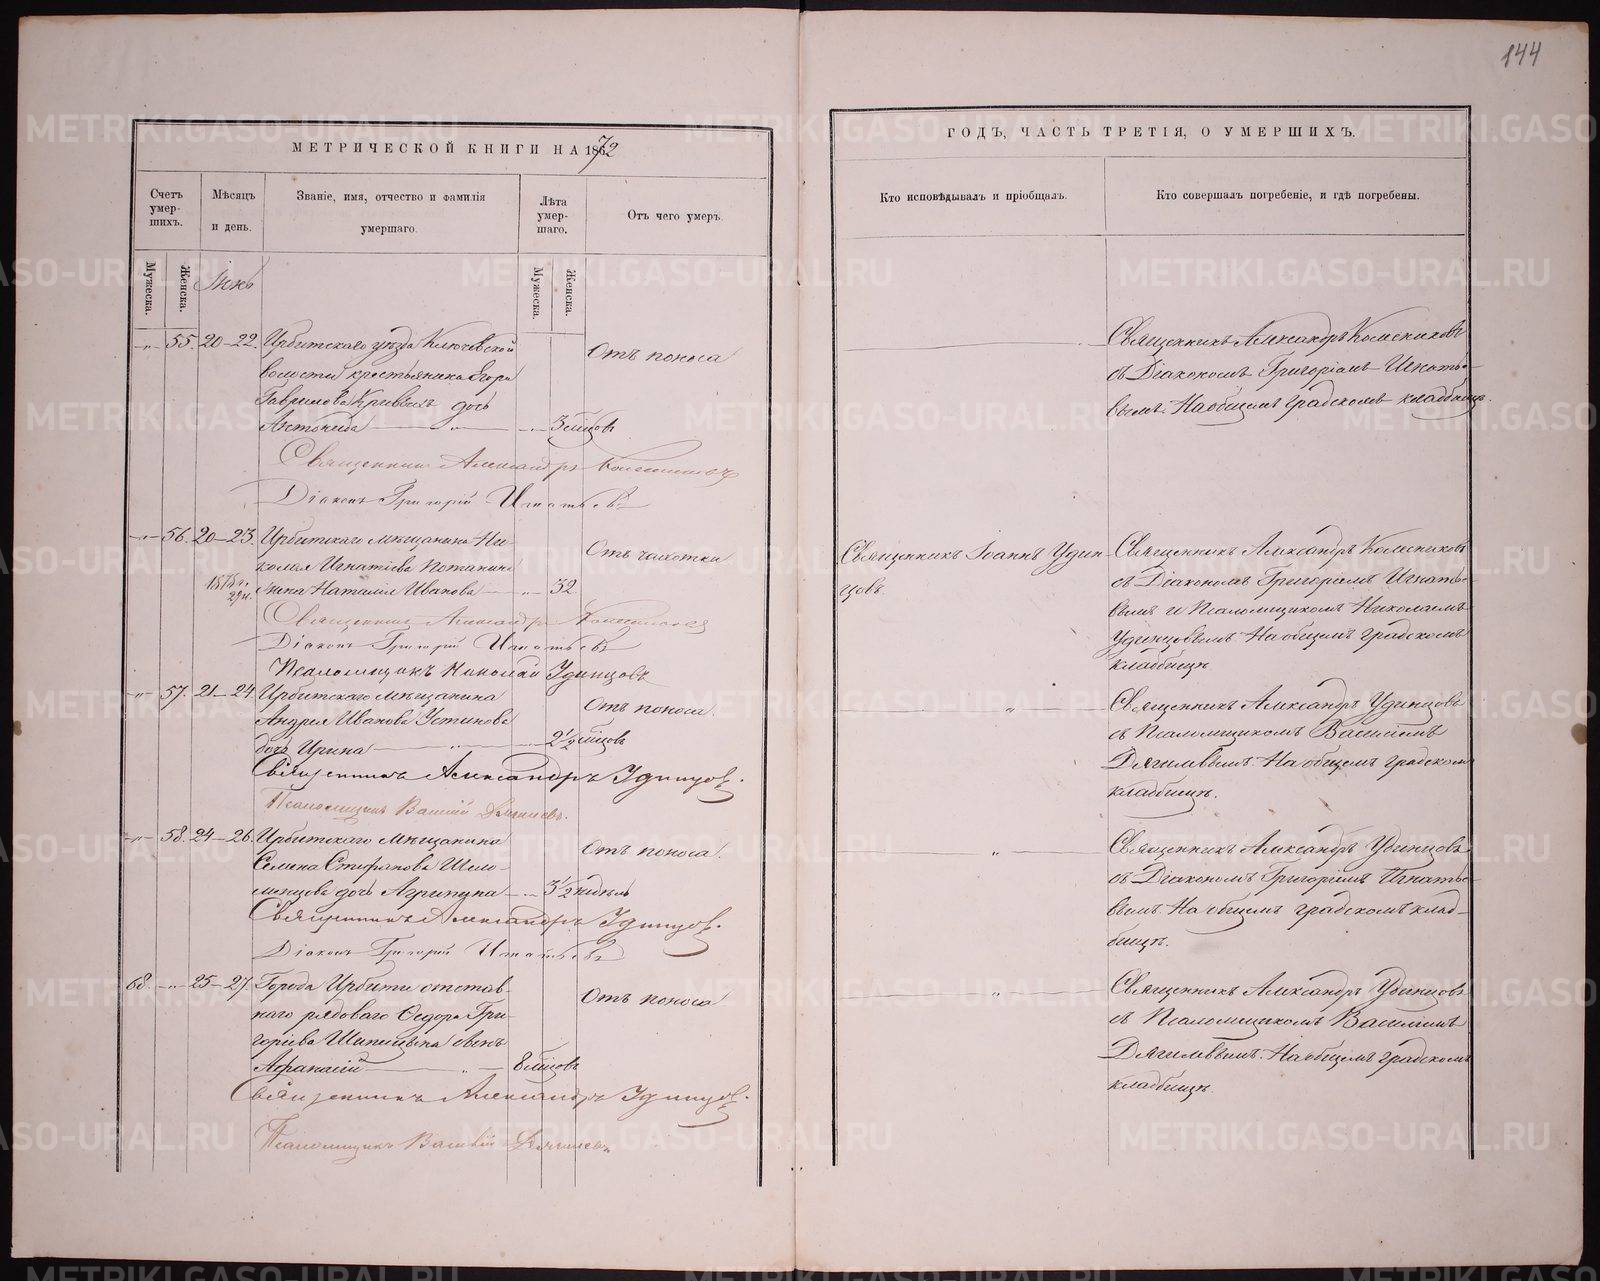 144
МЕТРИЧЕСКОЙ КНИГИ НА 1872
ГОДЪ, ЧАСТЬ ТРЕТІЯ, О УМЕРШИХЪ.
Счетъ умер-шихъ.
Мѣсяцъ и день.
Званіе, имя, отчество и фамилія умершаго.
Лѣта умер-шаго.
Отъ чего умеръ.
Кто исповѣдывалъ и пріобщалъ.
Кто совершалъ погребеніе, и гдѣ погребены.
Мужеска.
Женска.
Мужеска.
Женска.
55. 20–22. Ирбитскаго уѣзда Ключевской
волости крестьянина Егора
Гаврилова Кривыхъ дочь
Антонина 3 мѣсцовъ
Отъ поноса
Священникъ Александръ Колесниковъ
съ Діакономъ Григоріемъ Игнатье-
вымъ. На общемъ градскомъ кладбищѣ.
Священникъ Александръ Колесниковъ
Діаконъ Григорій Игнатьевъ
56. 20–23. Ирбитскаго мѣщанина Ни-
колая Игнатіева Потанина
жена Наталія Иванова 32.
Отъ чахотки
Священникъ Іоаннъ Удин
цовъ.
Священникъ Александръ Колесниковъ
съ Діакономъ Григоріемъ Игнатье-
вымъ и Псаломщикомъ Николаемъ
Удинцовымъ. На общемъ градскомъ
кладбищѣ
Священникъ Александръ Колесниковъ
Діаконъ Григорій Игнатьевъ
Псаломщикъ Николай Удинцовъ
57. 21–24 Ирбитскаго мѣщанина
Андрея Иванова Устинова
дочь Ирина 2 1/2 мѣсцовъ
Отъ поноса.
Священникъ Александръ Удинцовъ
съ Псаломщикомъ Василіемъ
Дягилевымъ. На общемъ градскомъ
кладбищѣ.
Священникъ Александръ Удинцовъ.
Псаломщикъ Василій Дягилевъ.
58. 24–26. Ирбитскаго мѣщанина
Семена Стефанова Шело-
менцова дочь Агрипина 3 1/2 недѣль
Отъ поноса.
Священникъ Александръ Удинцовъ
съ Діакономъ Григоріемъ Игнатье-
вымъ. На общемъ градскомъ клад-
бищѣ.
Священникъ Александръ Удинцовъ.
Діаконъ Григорій Игнатьевъ
68. 25–27. Города Ирбити отстав-
наго рядоваго Ѳедора Гри-
горіева сынъ
Афанасій 8 мѣсцовъ
Отъ поноса
Священникъ Александръ Удинцовъ
съ Псаломщикомъ Василіемъ
Дягилевымъ. На общемъ градскомъ
кладбищѣ.
Священникъ Александръ Удинцовъ.
Псаломщикъ Василій Дягилевъ
METRIKI.GASO-URAL.RU